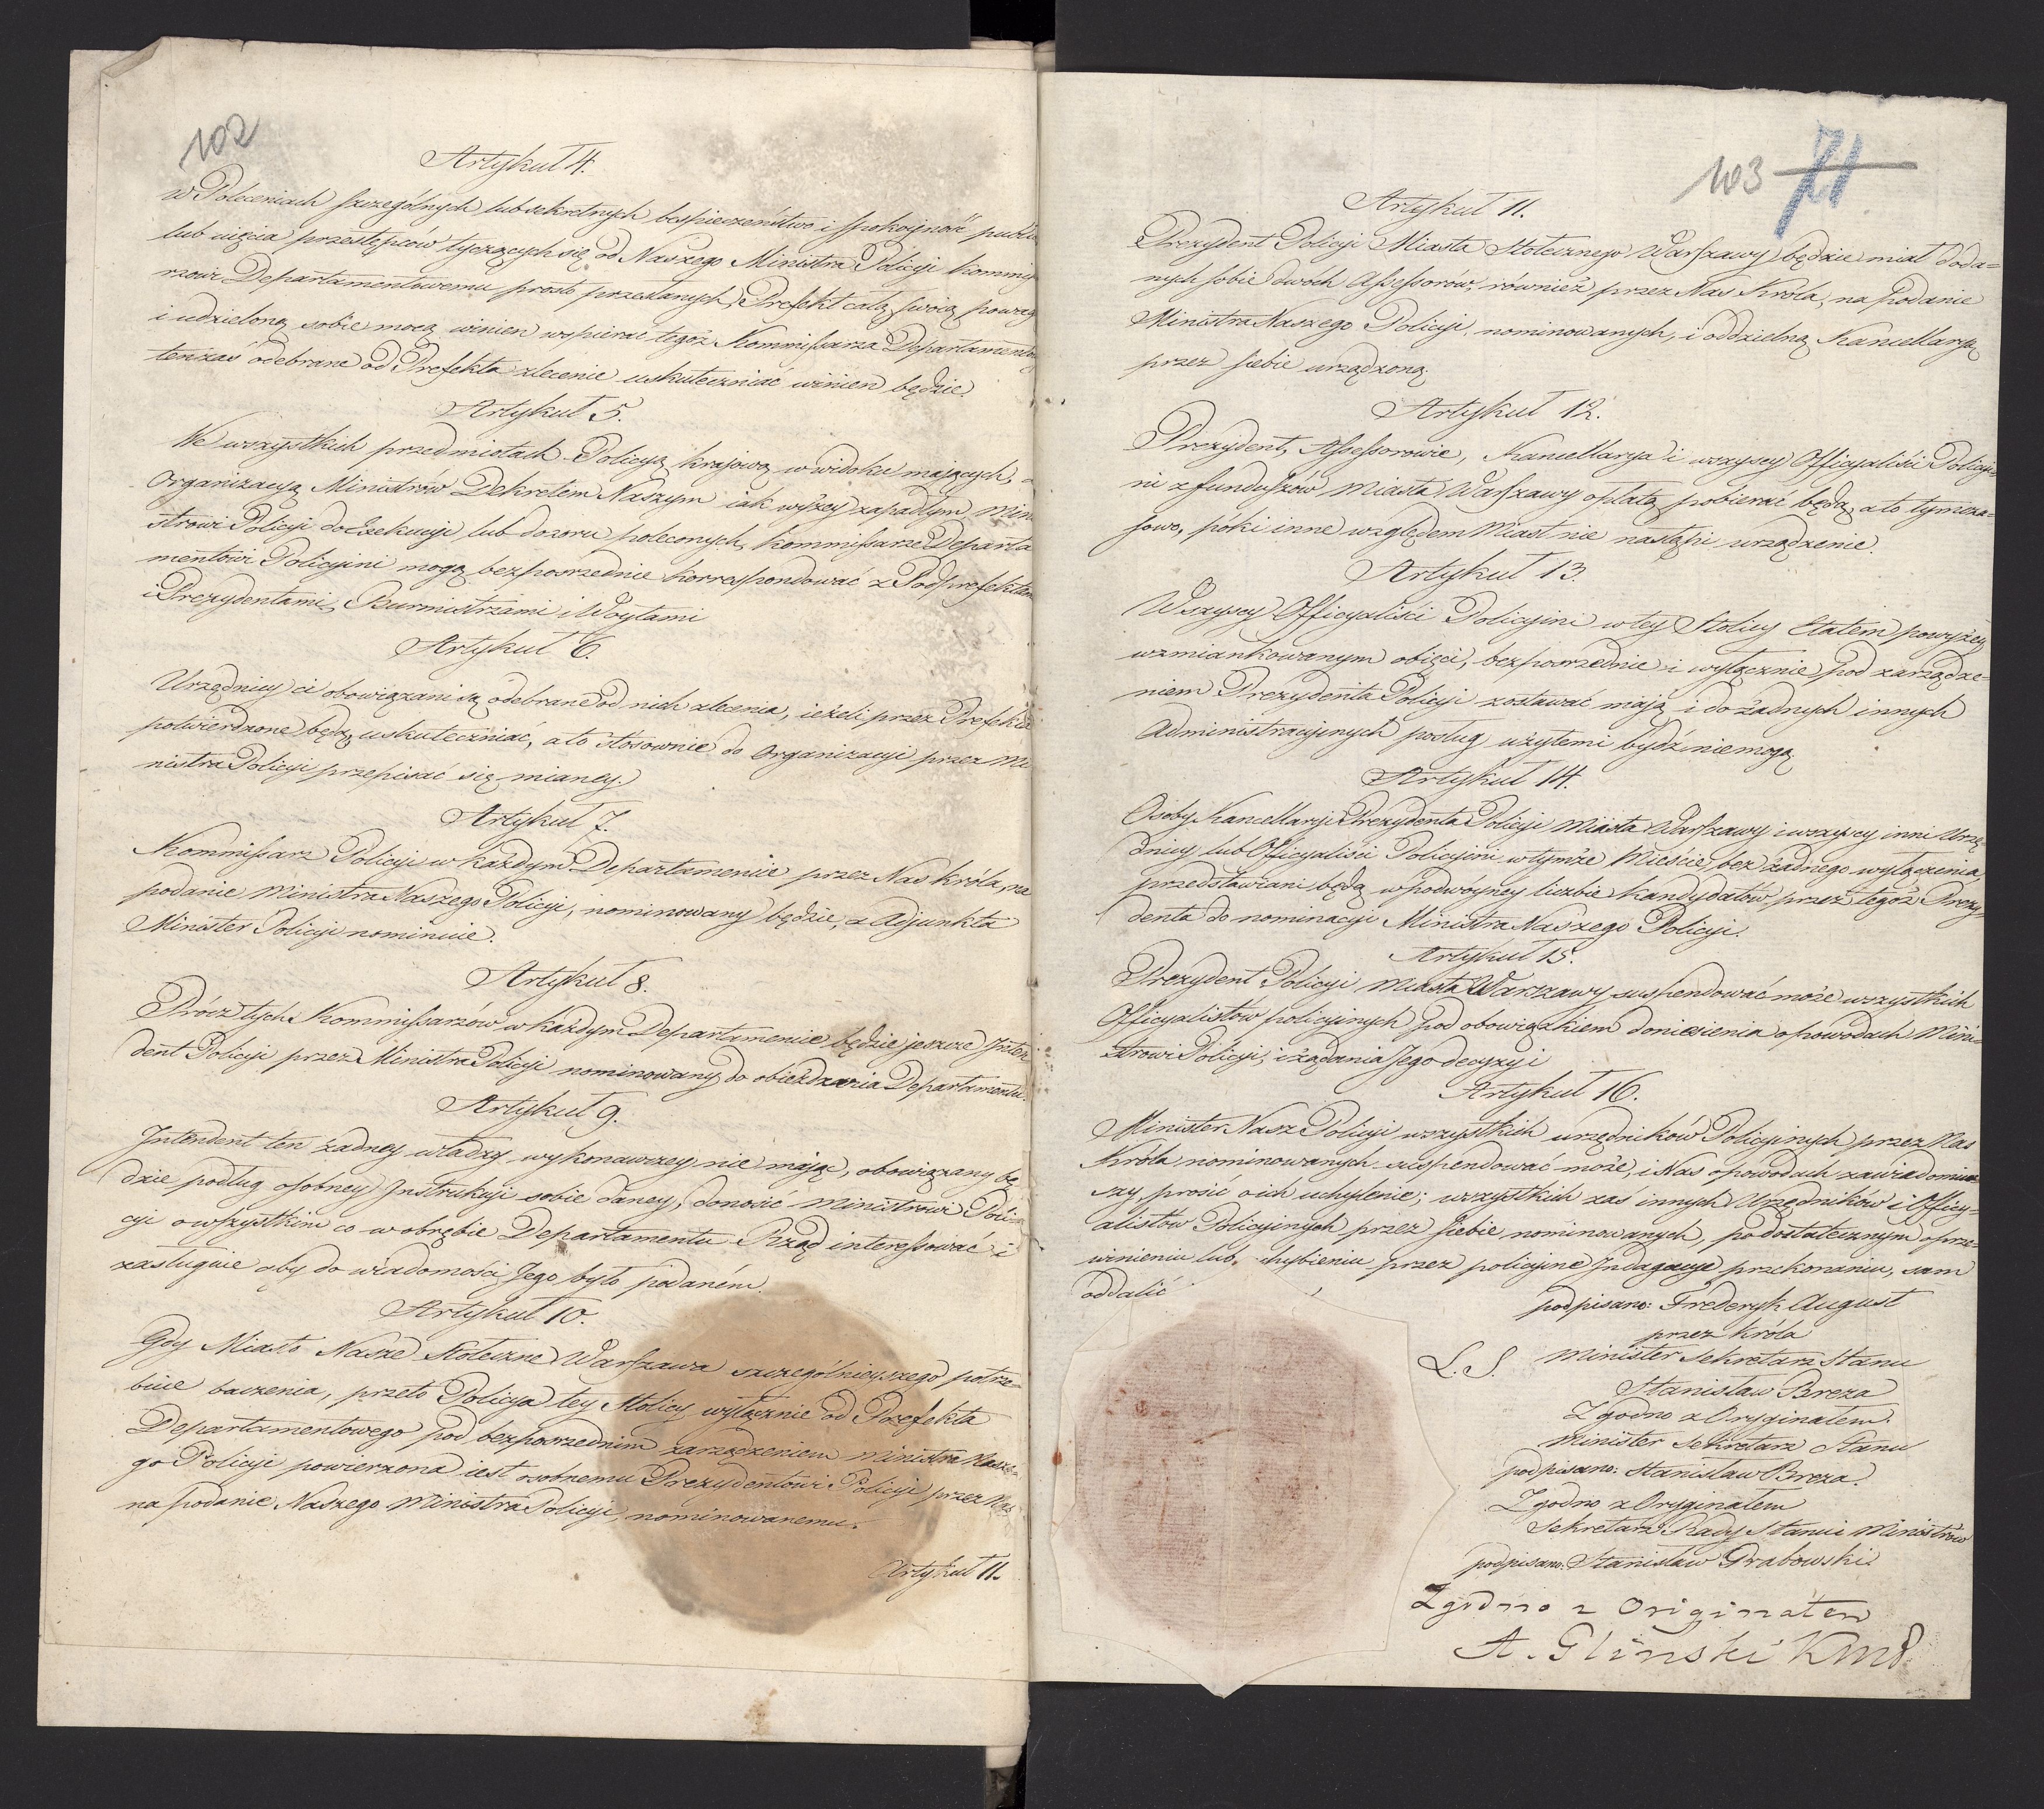 102
Artykuł 4.
w Poleceniach szczególnych lub sekretnych bespieczeństwo i spokoyność publi
lub uięcia przestępców tyczących się, od Naszego Ministra Policyi Kommis
rzowi Departamentowemu prosto przesłanych, Prefekt całą swoią powagą
i udzieloną sobie mocą winien wspierać tegoż Kommissarza Departamento
tenzaś odebrane od Prefekta zlecenie uskuteczniać winien będzie.
Artykuł 5.
We wszystkich przedmiotach Policyą kraiową w widoku maiących, a
Organizacyą Ministrów Dekretem Naszym iak wyżey zapadłym Mini
strowi Policyi do Exekucyi lub dozoru poleconych, Kommissarze Departa
mentowi Policyini mogą bezposrzednie korrespondować z Podprefektam
i Prezydentami, Burmistrzami i Woytami
Artykuł 6.
Urzędnicy ci obowiązani są odebrane od nich zlecenia, ieżeli przez Prefekta
potwierdzone będą, uskuteczniać, a to stosownie do Organizacyi przez Mi
nistra Policyi przepisać się mianey.
Artykuł 7.
Kommissarz Policyi w każdym Departamencie przez Nas Króla, na
podanie Ministra Naszego Policyi, nominowany będzie, a Adjunkta
Minister Policyi nominuie.
Artykuł 8.
Prócz tych Kommissarzów w każdym Departamencie będzie jeszcze Inten
dent Policyi przez Ministra Policyi nominowany do obieżdzania Departamentu.
Artykuł 9.
Intendent ten żadney władzy wykonawczey nie maiąc, obowiązany bę
dzie podług osobney Instrukcyi sobie daney, donosić Ministrowi Poli
cyi o wszystkim co w obrębie Departamentu Rząd interessować i
zasługuie aby do wiadomości Jego było podaném.
Artykuł 10.
Gdy Miasto Nasze Stołeczne Warszawa szczególnieyszego potrze=
buie baczenia, przeto Policya tey Stolicy wyłącznie od Prefekta
Departamentowego pod bezposrzednim zarządzeniem Ministra Nasze=
go Policyi powierzona iest osobnemu Prezydentowi Policyi przez Nas
na podanie Naszego Ministra Policyi, nominowanemu.
Artykuł 11.
103 71
Artykuł 11.
Prezydent Policyi Miasta Stołecznego Warszawy będzie miał doda=
nych sobie dwóch Assessorów również przez Nas Króla, na podanie
Ministra Naszego Policyi, nominowanych, i oddzielną Kancellaryą
przez siebie urządzoną
Artykuł 12.
Prezydent, Assessorowie, Kancellarya i wszyscy Officyaliści Policyi=
ni z funduszów Miasta Warszawy opłatę pobierać będą, a to tymcza=
sowo, póki inne względem Miast nie nastąpi urządzenie.
Artykuł 13.
Wszyscy Officyaliści Policyini w tey Stolicy Etatem powyżey
wzmiankowanym obięci, bezposrzednie i wyłącznie pod zarządze=
niem Prezydenta Policyi zostawać maią i do żadnych innych
Administracyinych posług użytemi bydź niemogą
Artykuł 14.
Osoby Kancellaryi Prezydenta Policyi Miasta Warszawy i wszyscy inni Urzę
dnicy lub Officyaliści Policyini w tymże Mieście, bez żadnego wyłączenia,
przedstawiani będą w podwóyney liczbie kandydatów, przez tegoż Prezy=
denta do nominacyi Ministra Naszego Policyi.
Artykuł 15.
Prezydent Policyi Miasta Warszawy suspendować może wszystkich
Officyalistów policyinych pod obowiązkiem doniesienia o powodach Mini=
strowi Policyi, i żądania Jego decyzyi
Artykuł 16.
Minister Nasz Policyi wszystkich urzędników Policyinych przez Nas
Króla nominowanych suspendować może, i Nas o powodach zawiadomiw
szy, prosić o ich uchylenie; wszystkich zaś innych Urzędników i Officy=
alistów Policyinych przez siebie nominowanych, po dostatecznym o prze=
winieniu lub chybieniu przez policyine Indagacye przekonaniu, sam
oddalić
podpisano: Frederyk August
przez Króla
L.S. Minister Sekretarz Stanu
Stanisław Breza
Zgodno z Oryginałem.
Minister Sekretarz Stanu
podpisano: Stanisław Breza.
Zgodno z Oryginałem
Sekretarz Rady Stanu i Ministrów
podpisano: Stanisław Grabowski.
Zgodno z Originałem
A. Glinski